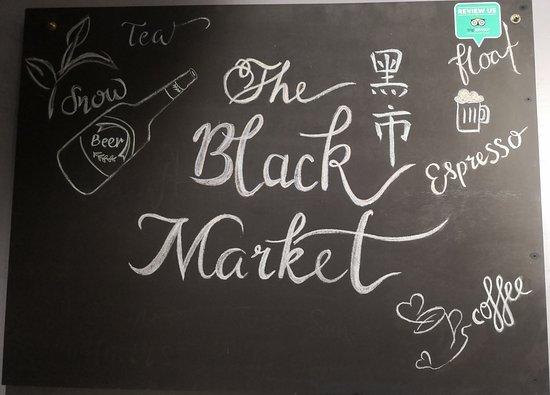 Tea
Snow
Beer
The
Black
Market
黑市
REVIEW US
float
Espresso
coffee